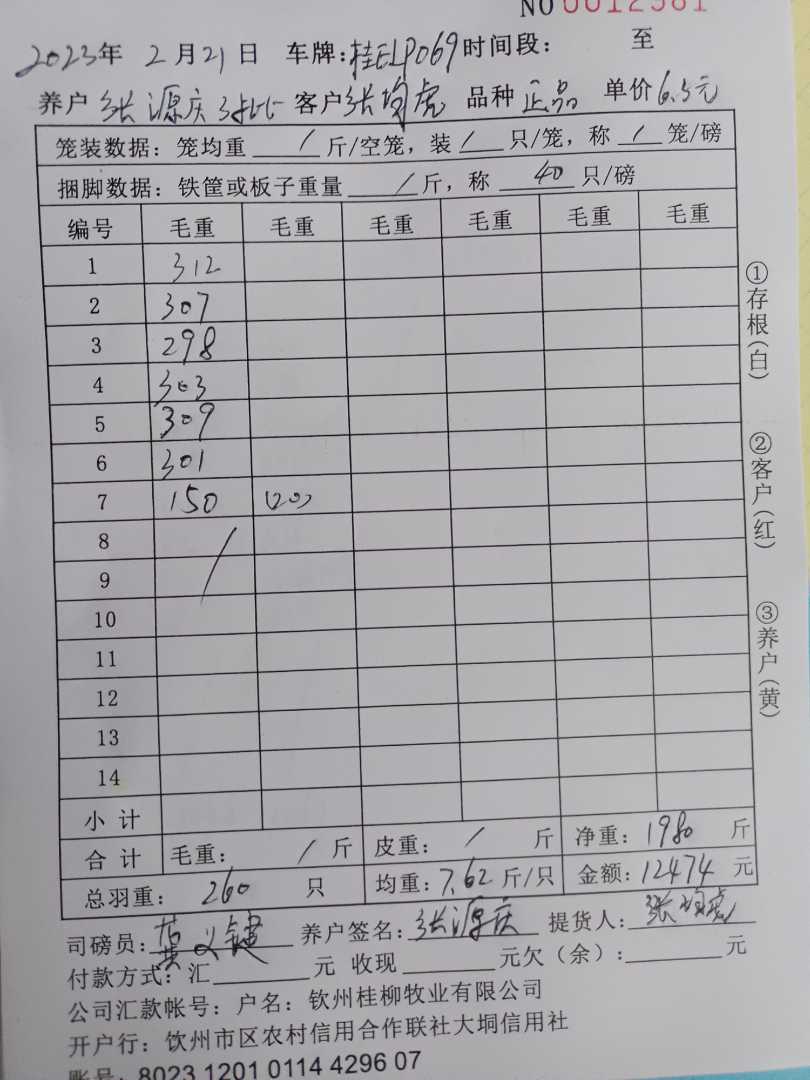 NO 0012981
2023年 2月21日 车牌:桂ELP069 时间段: 至
养户 张源庆 客户 张均虎 品种 正品 单价 6.5元
笼装数据: 笼均重 / 斤/空笼, 装 / 只/笼, 称 / 笼/磅
捆脚数据: 铁筐或板子重量 / 斤, 称 40 只/磅
编号 毛重 毛重 毛重 毛重 毛重 毛重
1 312
2 307
3 298
4 303
5 309
6 301
7 150 (20)
8 /
9
10
11
12
13
14
小计
合计 毛重: / 斤 皮重: / 斤 净重: 1980 斤
总羽重: 260 只 均重: 7.62 斤/只 金额: 12474 元
司磅员: 黄义键 养户签名: 张源庆 提货人: 张均虎
付款方式: 汇 元 收现 元欠（余）: 元
公司汇款帐号: 户名: 钦州桂柳牧业有限公司
开户行: 钦州市区农村信用合作联社大垌信用社
账号: 8023 1201 0114 4296 07
①存根(白)
②客户(红)
③养户(黄)